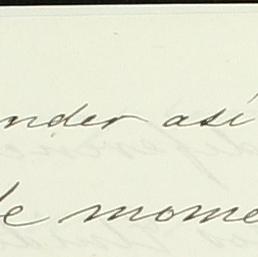 nder así
de mome